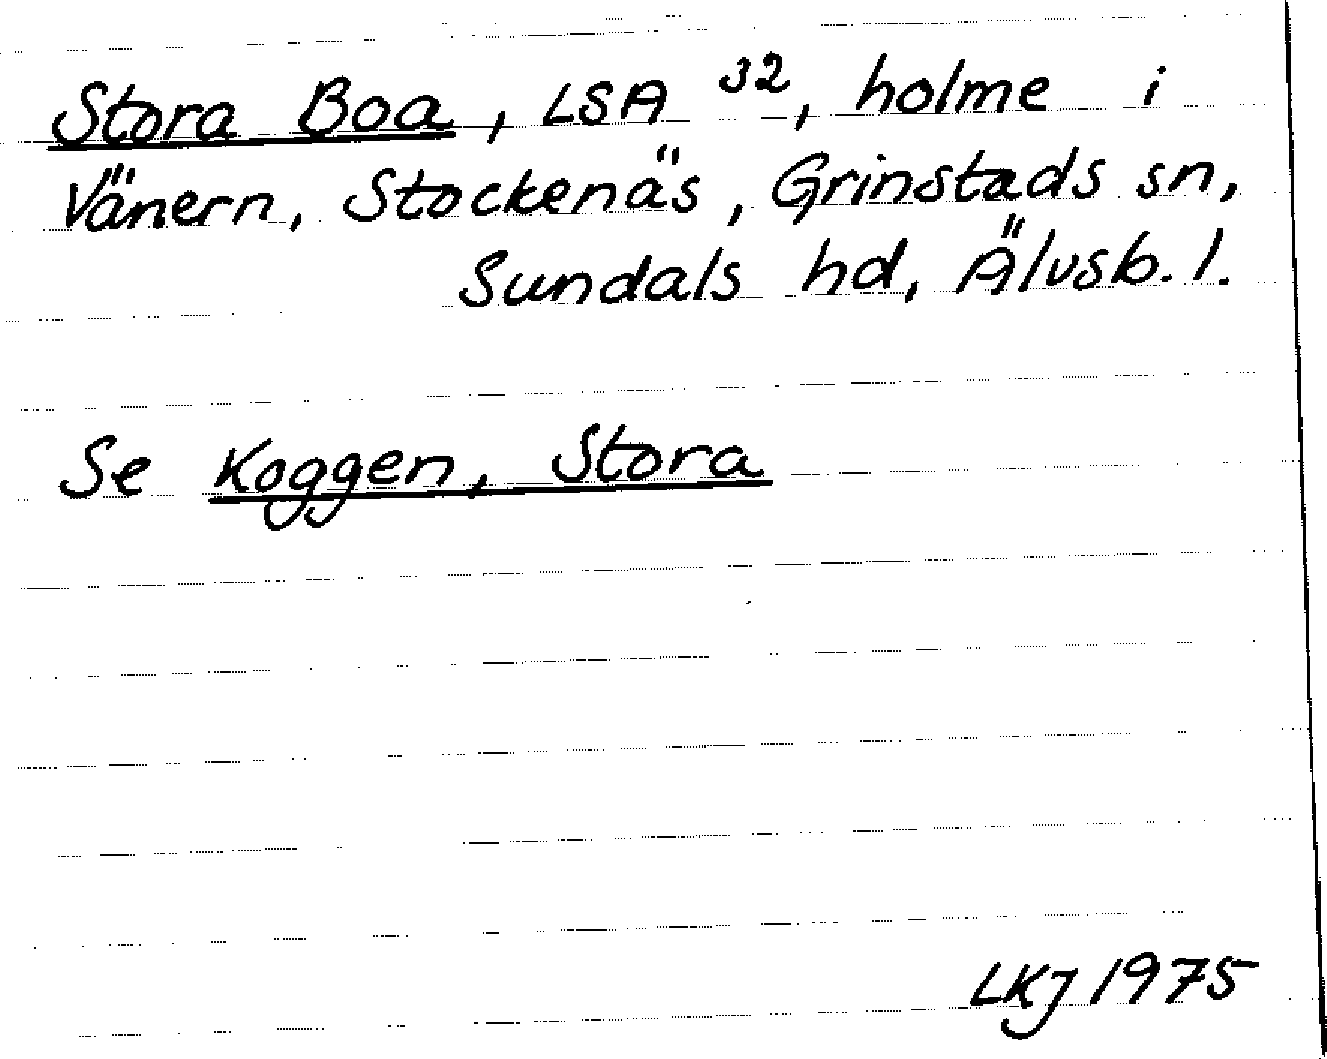 Stora Boa, LSA 32, holme i
Vänern, Stockenäs, Grinstads sn,
Sundals hd, Älvsb. l.
Se Koggen, Stora
LKJ 1975